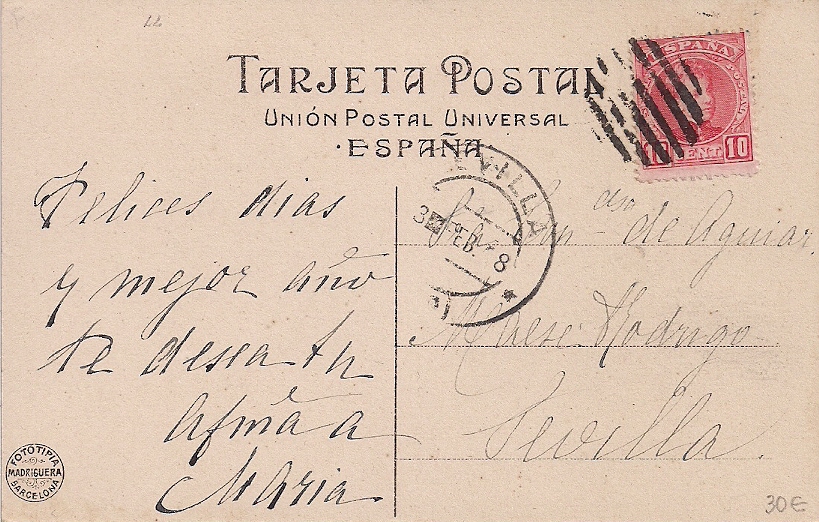 TARJETA POSTAL
UNIÓN POSTAL UNIVERSAL
·ESPAÑA·
ESPAÑA
10 CENT 10
SEVILLA
FEB. 8
Felices dias
y mejor año
te desea tu
afma a
Maria
de Aguiar
Maese Rodrigo
Sevilla.
FOTOTIPIA
MADRIGUERA
BARCELONA
30€